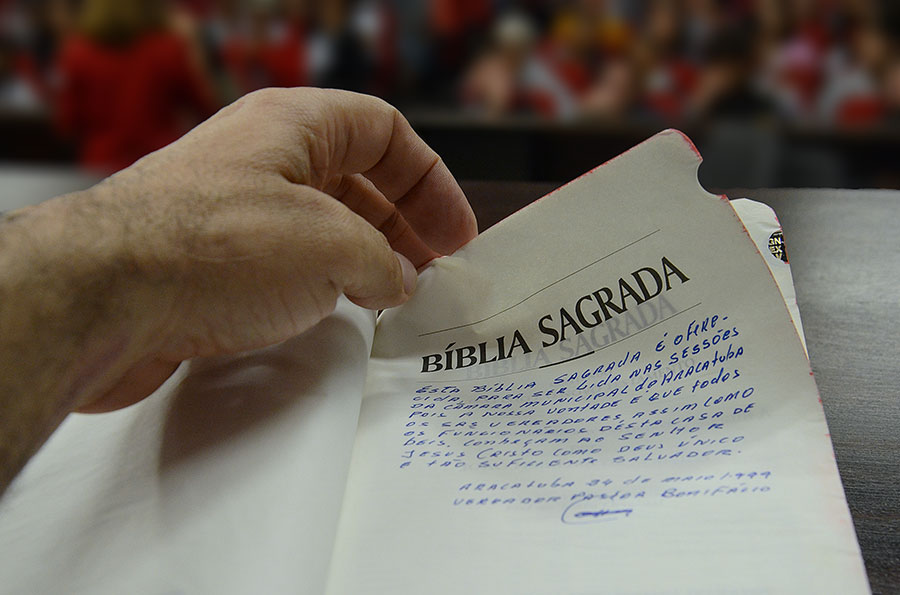 BÍBLIA SAGRADA
ESTA BÍBLIA SAGRADA É OFERE-
CIDA PARA SER LIDA NAS SESSÕES
DA CÂMARA MUNICIPAL DE ARAÇATUBA
POIS A NOSSA VONTADE É QUE TODOS
OS VEREADORES ASSIM COMO
OS FUNCIONÁRIOS DESTA CASA DE
LEIS, CONHEÇAM AO SENHOR
JESUS CRISTO COMO DEUS ÚNICO
E TÃO SUFICIENTE SALVADOR.
ARAÇATUBA 24 de MAIO 1.999
VEREADOR PASTOR BONIFÁCIO